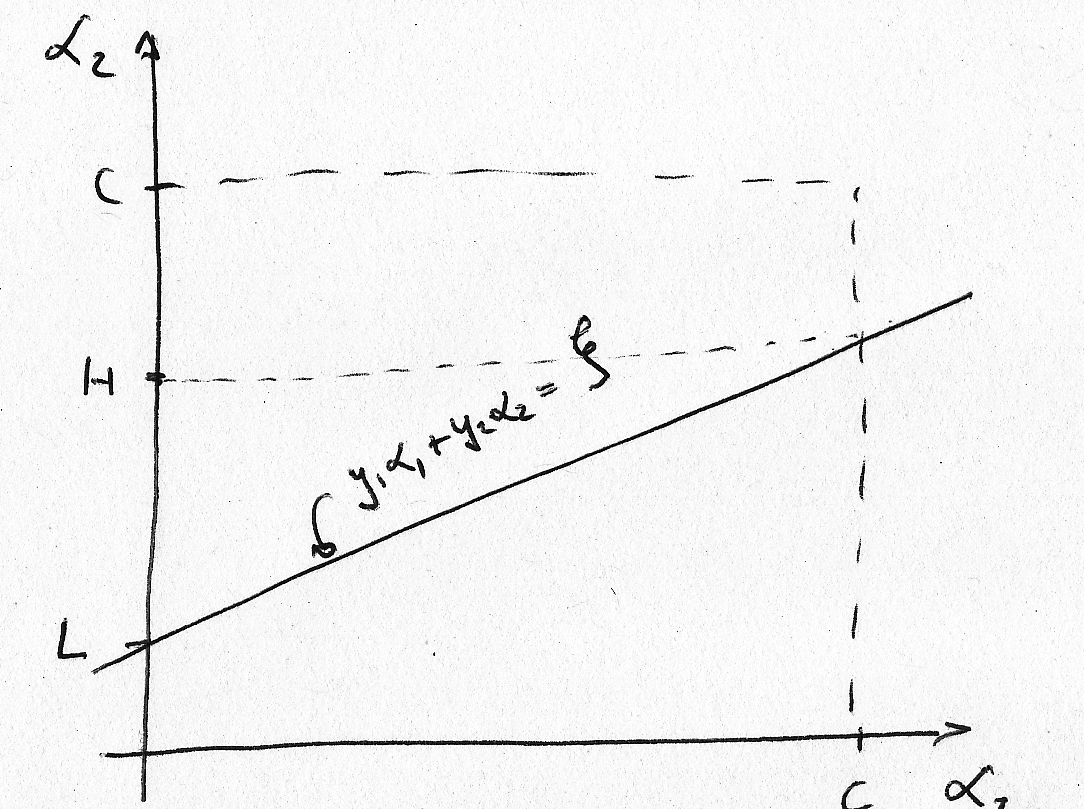 α₂
C
H
y₁α₁ + y₂α₂ = ζ
L
C
α₂